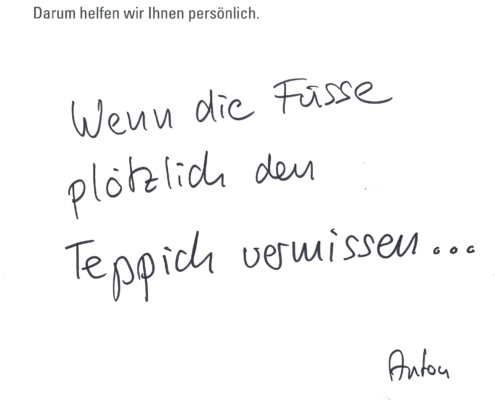 Darum helfen wir Ihnen persönlich.
Wenn die Füsse
plötzlich den
Teppich vermissen...
Anton